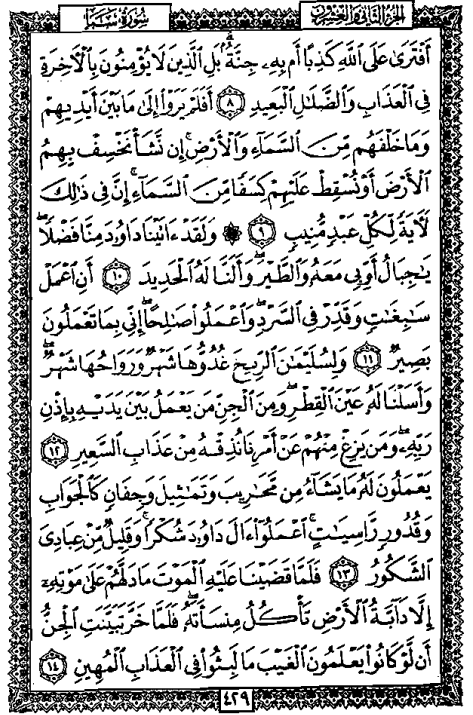 الجزء الثاني والعشرون
سورة سبإ
أَفْتَرَىٰ عَلَى ٱللَّهِ كَذِبًا أَم بِهِۦ جِنَّةٌۢ ۗ بَلِ ٱلَّذِينَ لَا يُؤْمِنُونَ بِٱلْـَٔاخِرَةِ
فِى ٱلْعَذَابِ وَٱلضَّلَـٰلِ ٱلْبَعِيدِ ٨ أَفَلَمْ يَرَوْا۟ إِلَىٰ مَا بَيْنَ أَيْدِيهِمْ
وَمَا خَلْفَهُم مِّنَ ٱلسَّمَآءِ وَٱلْأَرْضِ ۚ إِن نَّشَأْ نَخْسِفْ بِهِمُ
ٱلْأَرْضَ أَوْ نُسْقِطْ عَلَيْهِمْ كِسَفًا مِّنَ ٱلسَّمَآءِ ۚ إِنَّ فِى ذَٰلِكَ
لَـَٔايَةً لِّكُلِّ عَبْدٍ مُّنِيبٍ ٩ ۞ وَلَقَدْ ءَاتَيْنَا دَاوُۥدَ مِنَّا فَضْلًا ۖ
يَـٰجِبَالُ أَوِّبِى مَعَهُۥ وَٱلطَّيْرَ ۖ وَأَلَنَّا لَهُ ٱلْحَدِيدَ ١٠ أَنِ ٱعْمَلْ
سَـٰبِغَـٰتٍ وَقَدِّرْ فِى ٱلسَّرْدِ ۖ وَٱعْمَلُوا۟ صَـٰلِحًا ۖ إِنِّى بِمَا تَعْمَلُونَ
بَصِيرٌ ١١ وَلِسُلَيْمَـٰنَ ٱلرِّيحَ غُدُوُّهَا شَهْرٌ وَرَوَاحُهَا شَهْرٌ ۖ
وَأَسَلْنَا لَهُۥ عَيْنَ ٱلْقِطْرِ ۖ وَمِنَ ٱلْجِنِّ مَن يَعْمَلُ بَيْنَ يَدَيْهِ بِإِذْنِ
رَبِّهِۦ ۖ وَمَن يَزِغْ مِنْهُمْ عَنْ أَمْرِنَا نُذِقْهُ مِنْ عَذَابِ ٱلسَّعِيرِ ١٢
يَعْمَلُونَ لَهُۥ مَا يَشَآءُ مِن مَّحَـٰرِيبَ وَتَمَـٰثِيلَ وَجِفَانٍ كَٱلْجَوَابِ
وَقُدُورٍ رَّاسِيَـٰتٍ ۚ ٱعْمَلُوٓا۟ ءَالَ دَاوُۥدَ شُكْرًا ۚ وَقَلِيلٌ مِّنْ عِبَادِىَ
ٱلشَّكُورُ ١٣ فَلَمَّا قَضَيْنَا عَلَيْهِ ٱلْمَوْتَ مَا دَلَّهُمْ عَلَىٰ مَوْتِهِۦٓ
إِلَّا دَآبَّةُ ٱلْأَرْضِ تَأْكُلُ مِنسَأَتَهُۥ ۖ فَلَمَّا خَرَّ تَبَيَّنَتِ ٱلْجِنُّ
أَن لَّوْ كَانُوا۟ يَعْلَمُونَ ٱلْغَيْبَ مَا لَبِثُوا۟ فِى ٱلْعَذَابِ ٱلْمُهِينِ ١٤
٤٢٩